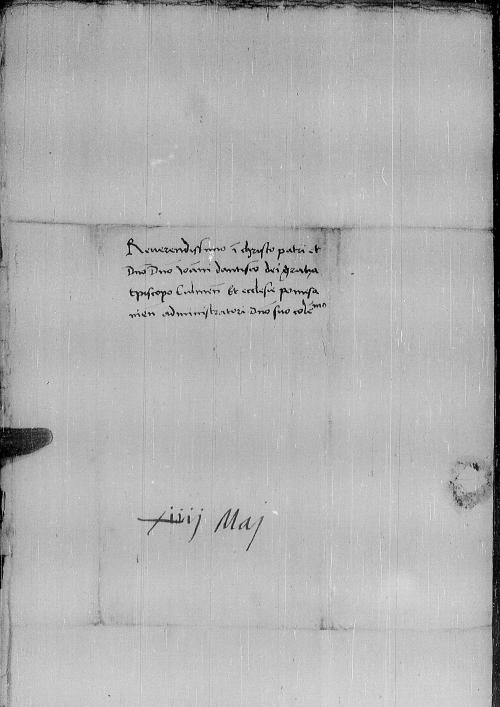 Reverendissimo i͞ christo patri et
Dn͞o Dn͞o Joa͞ni dantisco dei gratia
Episcopo Culmen͞ Et ecclesie pomesa
nien administratori Dn͞o suo col͞emo
xiiij Maj